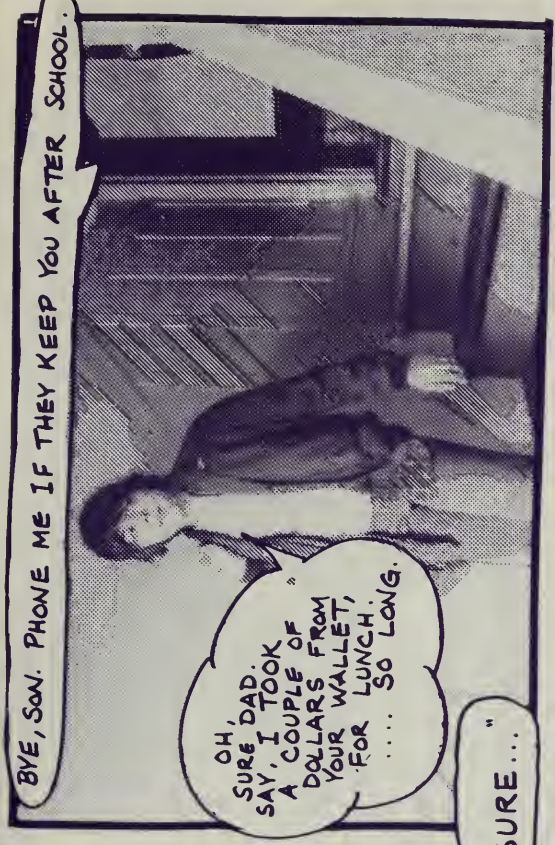 BYE, SON. PHONE ME IF THEY KEEP YOU AFTER SCHOOL.
OH,
SURE DAD.
SAY, I TOOK
A COUPLE OF
DOLLARS FROM
YOUR WALLET,
FOR LUNCH.
.... SO LONG.
SURE..."